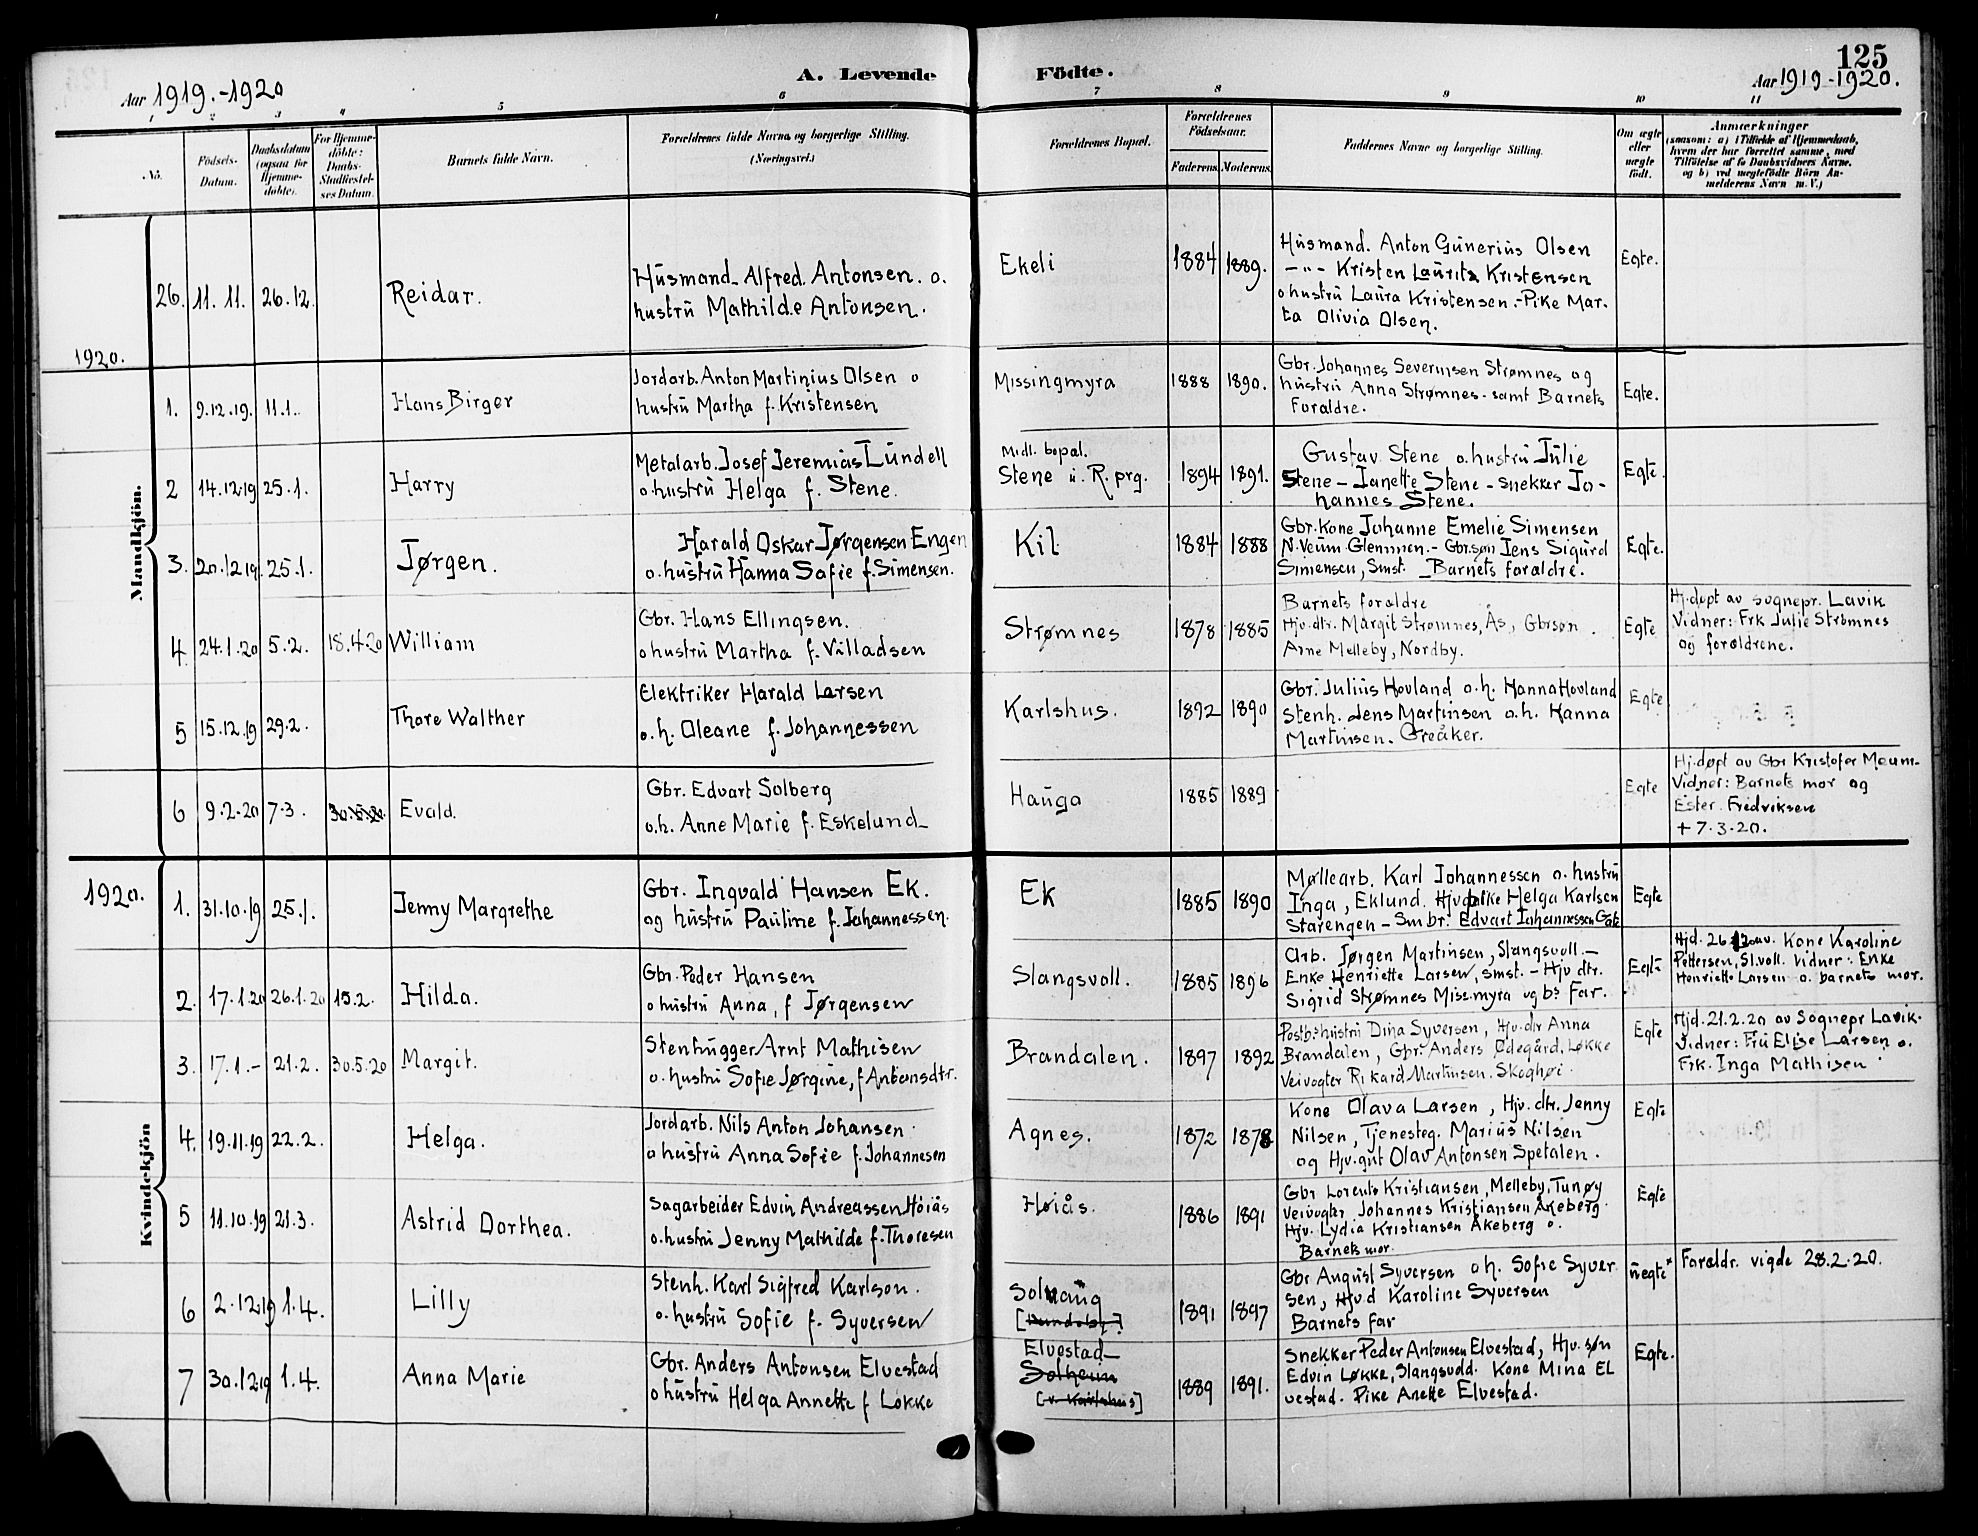 125
A. Levende Födte.
Aar 1919.-1920
Aar 1919-1920.
1 2 3 4 5 6 7 8 9 10 11
No.
Födsels-Datum.
Daabsdatum (ogsaa for Hjemme-döbte).
For Hjemme-döbte: Daabs-Stadfæstel-ses Datum.
Barnets fulde Navn.
Forældrenes fulde Navne og borgerlige Stilling. (Næringsvei.)
Forældrenes Bopæl.
Forældrenes Födselsaar.
Faderens. Moderens.
Faddernes Navne og borgerlige Stilling.
Om ægte eller uægte födt.
Anmærkninger
(saasom: a) i Tilfælde af Hjemmedaab, hvem der har forrettet samme, med Tilföielse af to Daabsvidners Navne, og b) ved uægtefödte Börn Anmelderens Navn m. V.)
Mandkjön.
26. 11. 11. 26.12. Reidar.
Husmand. Alfred. Antonsen. o.
hustru Mathilde Antonsen.
Ekeli 1884 1889.
Husmand. Anton Gunerius Olsen
-"- Kristen Lauritz Kristensen
o hustru Laura Kristensen.-Pike Mar-
ta Olivia Olsen.
Egte.
1920.
1. 9.12.19. 11.1. Hans Birger
Jordarb. Anton Martinius Olsen o
hustru Martha f. Kristensen
Missingmyra 1888 1890.
Gbr. Johannes Severinsen Strømnes og
hustru Anna Strømnes - samt Barnets
Foraldre.
Egte.
2 14.12 19 25.1. Harry
Metalarb. Josef Jeremias Lundell
o. hustru Helga f. Stene.
Midl. bopæl.
Stene i R. prg. 1894 1891.
Gustav Stene o. hustru Julie
Stene - Janette Stene - snekker Jo-
hannes Stene.
Egte.
3. 20.12 19. 25.1. Jørgen.
Harald Oskar Jørgensen Engen
o. hustru Hanna Sofie f. Simensen.
Kil 1884 1888
Gbr. Kone Johanne Emelie Simensen
N. Veum Glemmen.- Gbr.søn Jens Sigurd
Simensen, Smst. Barnets foraldre.
Egte.
4. 24.1.20 5.2. 18.4.20 William
Gbr. Hans Ellingsen.
o hustru Martha f. Villadsen
Strømnes 1878 1885
Barnets foraldre
Hjv. dtr. Margit Strømnes, Ås, Gbrsøn
Arne Melleby, Nordby.
Egte
Hj.døpt av sognepr. Lavik
Vidner: Frk Julie Strömnes
og foraldrene.
5 15.12.19 29.2. Thore Walther
Elektriker Harald Larsen
o. h. Oleane f. Johannessen
Karlshus. 1892 1890
Gbr. Julius Hovland o.h. Hanna Hovland
Stenh. Jens Martinsen o.h. Hanna
Martinsen. Greåker.
Egte
6 9.2.20 7.3. 30.5.20. Evald.
Gbr. Edvart Solberg
o.h. Anne Marie f. Eskelund
Hauga 1885 1889
Egte
Hj.døpt av Gbr Kristofer Meum.
Vidner: Barnets mor og
Ester. Fredriksen
+ 7.3.20.
Kvindekjön
1920.
1. 31.10.19 25.1. Jenny Margrethe
Gbr. Ingvald Hansen Ek.
og hustru Pauline f. Johannessen.
Ek 1885 1890
Møllearb. Karl Johannessen o. hustru
Inga, Eklund. Hjv pike Helga Karlsen
Starengen - Smbr. Edvart Johannessen
Egte
2. 17.1.20 26.1.20 15.2. Hilda.
Gbr. Peder Hansen
o hustru Anna, f Jørgensen
Slangsvoll. 1885 1896
Arb. Jørgen Martinsen, Slangsvoll -
Enke Henriette Larsen, smst. - Hjv dtr.
Sigrid Strømnes Miss.myra og bs Far.
Egte
Hjd. 26 av. Kone Karoline
Pettersen, Sl.voll. Vidner: Enke
Henriette Larsen o. barnets mor.
3. 17.1.- 21.2. 30.5.20 Margit.
Stenhugger Arnt Mathisen
o. hustru Sofie Jørgine, f Antonsdtr.
Brandalen. 1897 1892
Postb. hustru Dina Syversen, Hjv. dtr Anna
Brandalen, Gbr. Anders Ødegård, Løkke
Veivogter Rikard Martinsen. Skoghøi.
Egte
Hjd. 21.2.20 av Sognepr Lavik.
Vidner: Fru Elise Larsen o.
Frk. Inga Mathisen
4. 19.11.19 22.2. Helga.
Jordarb. Nils Anton Johansen.
o hustru Anna Sofie f. Johannesen
Agnes. 1872 1878
Kone Olava Larsen, Hjv. dtr. Jenny
Nilsen, Tjenesteg. Marius Nilsen
og Hjv. gut Olav Antonsen Spetalen.
Egte
5 11.10.19 21.3. Astrid Dorthea.
Sagarbeider Edvin Andreassen Höiås
o. hustru Jenny Mathilde f. Thoresen
Høiås. 1886 1891
Gbr Lorents Kristiansen, Melleby, Tunøy
Veivogter Johannes Kristiansen Åkeberg.
Hjv. Lydia Kristiansen Åkeberg o.
Barnets mor.
Egte
6 2.12 19 1.4. Lilly
Stenh. Karl Sigfred Karlson.
o. hustru Sofie f. Syversen
Solhaug
1891 1897
Gbr August Syversen o h. Sofie Syver
sen, Hjv.d Karoline Syversen
Barnets far
uegte x
Foraldr. vigde 28.2.20.
7 30.12 19 1.4. Anna Marie
Gbr. Anders Antonsen Elvestad
o hustru Helga Annette f Løkke
Elvestad
Solheim
[v. Karlshus]
1889 1891.
Snekker Peder Antonsen Elvestad, Hjv. søn
Edvin Løkke, Slangsvold. Kone Mina El
vestad. Pike Anette Elvestad.
Egte.